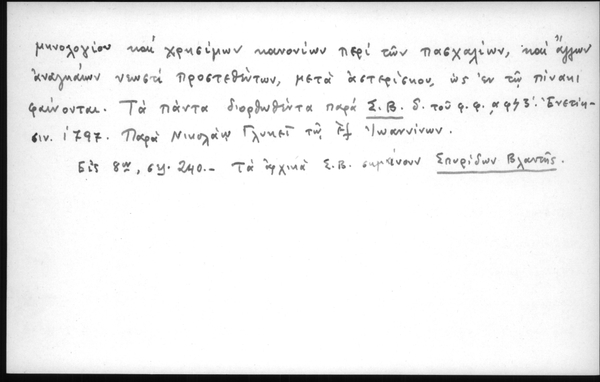 μηνολογίου καὶ χρησίμων κανονίων περὶ τῶν πασχαλίων, καὶ ἄλλων
ἀναγκαίων νεωστὶ προστεθέντων, μετὰ ἀστερίσκου, ὡς ἐν τῷ πίνακι
φαίνονται. Τὰ πάντα διορθωθέντα παρὰ Σ. Β. δ. τοῦ φ. φ. Ἐνετίη-
σιν. 1797. Παρὰ Νικολάῳ Γλυκεῖ τῷ ἐξ Ἰωαννίνων.
Εἰς 8ον, σελ. 240.- Τὰ ἀρχικὰ Σ.Β. σημαίνουν Σπυρίδων Βλαντῆς.